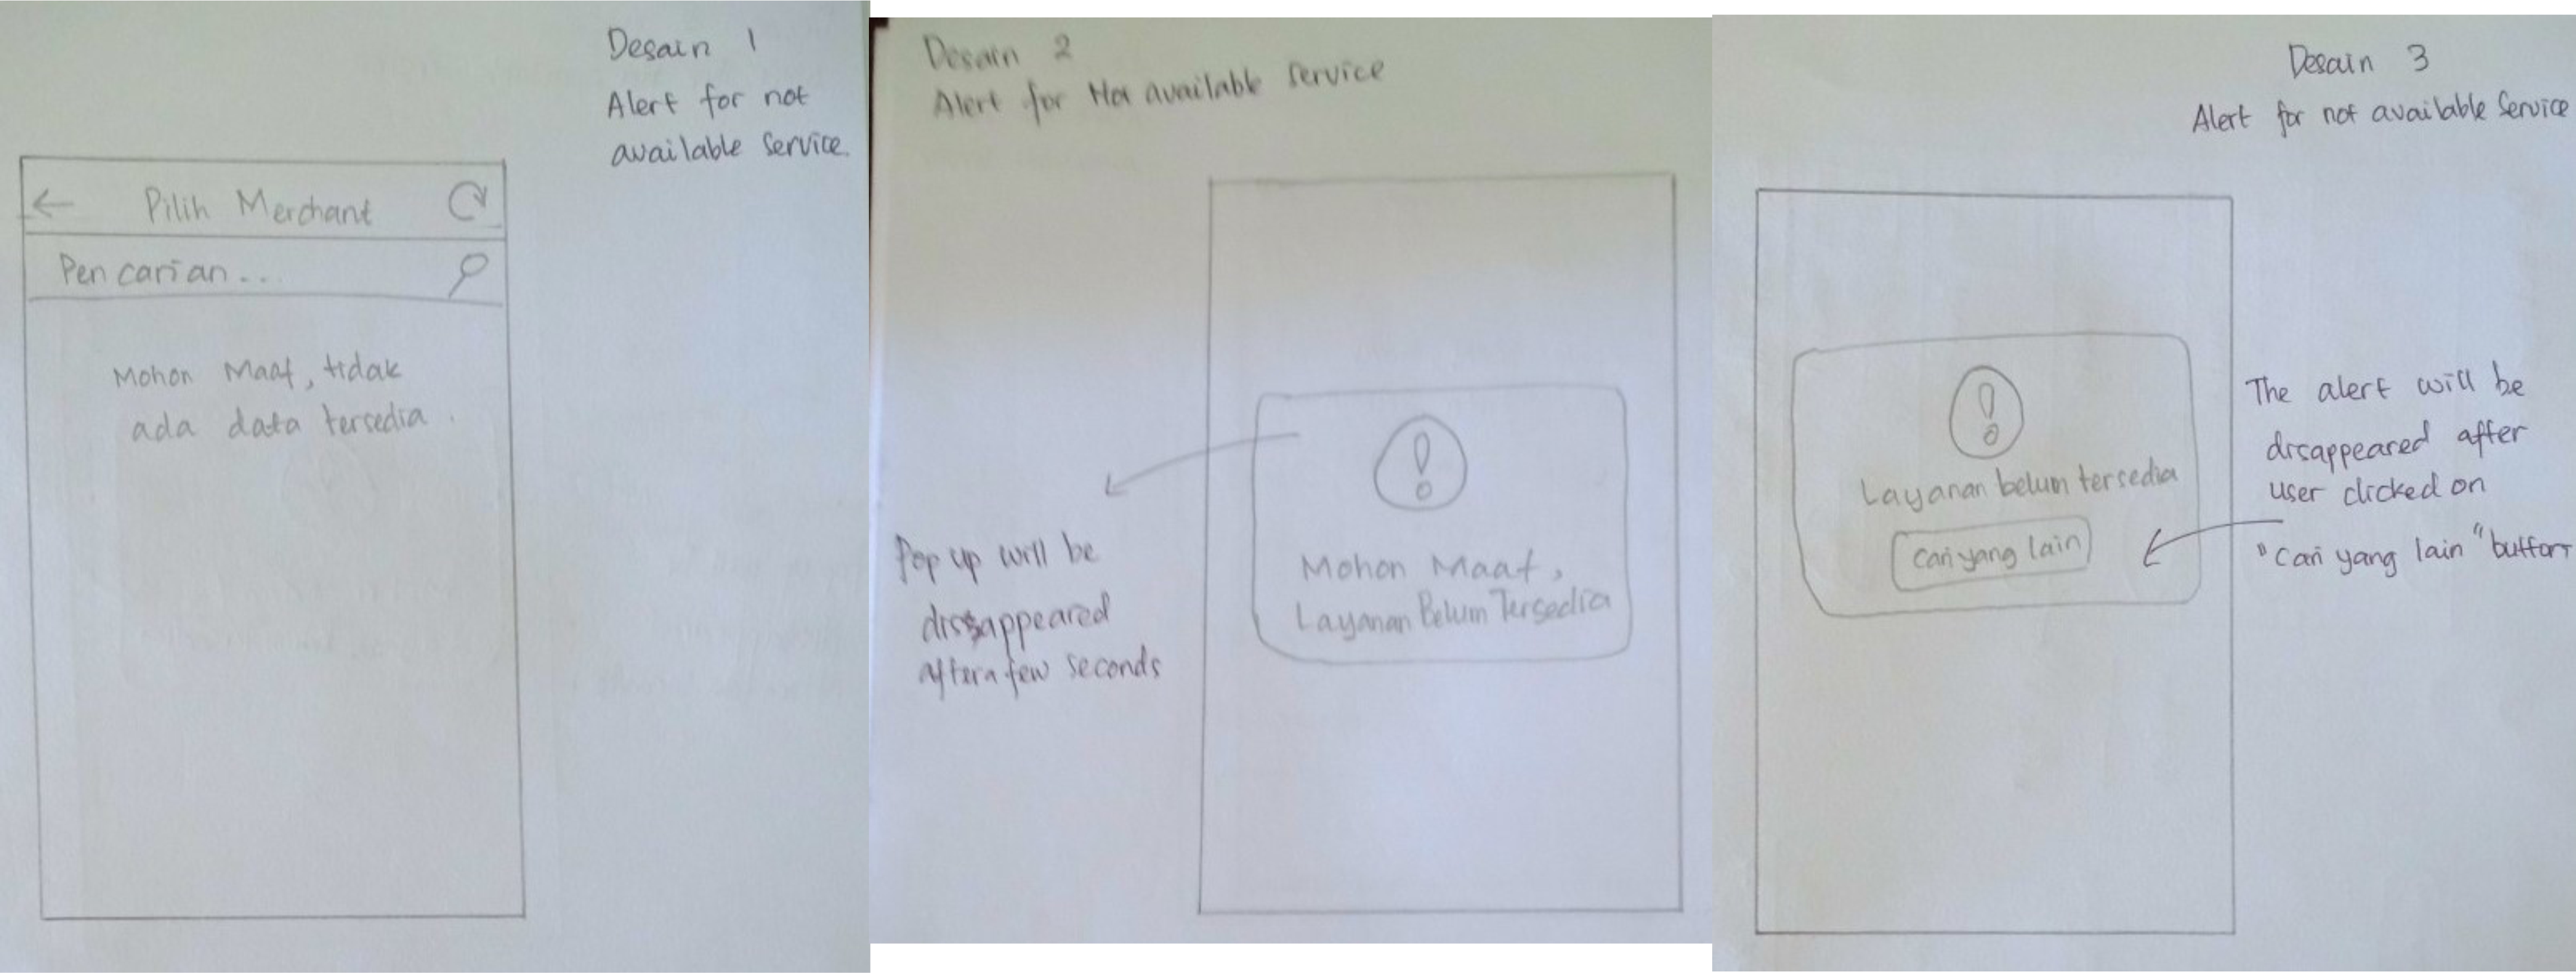 Desain 1
Alert for not
available service.
← Pilih Merchant
Pencarian...
Mohon Maaf, tidak
ada data tersedia.
Desain 2
Alert for Not available service
Pop up will be
dissappeared
after a few seconds
Mohon Maaf,
Layanan Belum Tersedia
Desain 3
Alert for not available service
Layanan belum tersedia
Cari yang lain
The alert will be
disappeared after
user clicked on
"Cari yang lain" button